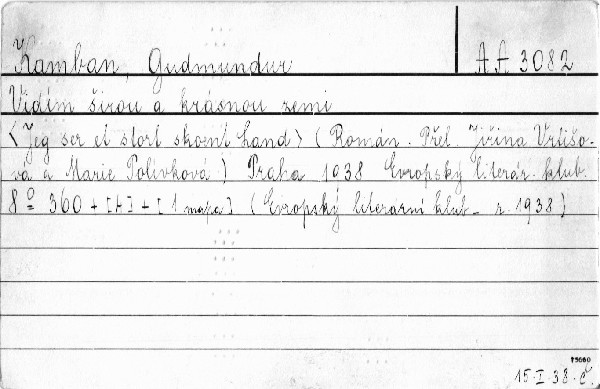 Kamban, Gudmundur AA 3082
Vidím širou a krásnou zemi
<Jeg ser et stort skoent Land> (Román. Přel. Jiřina Vrtišo-
vá a Marie Polívková.) Praha 1938 Evropský literár. klub.
8° 360 + [4] + [1 mapa] (Evropský literární klub - r. 1938)
15·I·38·Č.